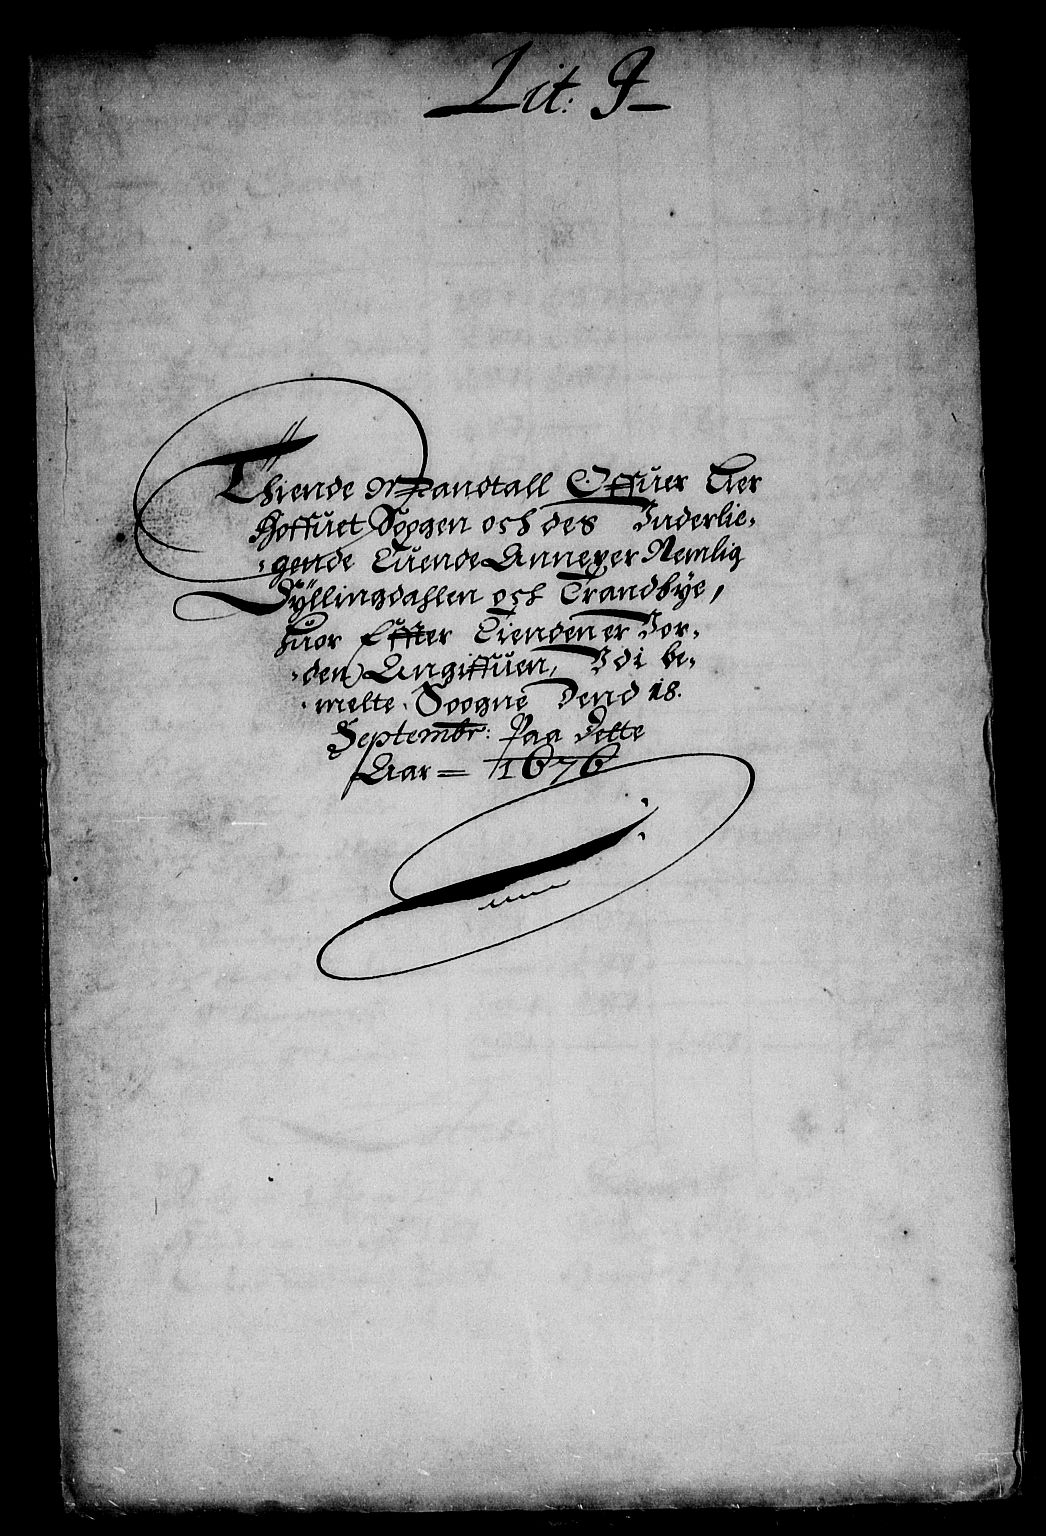 Lit: J
Thiende Mandtall Offuer Aer
hoffuet Sogen och des Inderlie,
gende Tuende Annexer Nemlig
Dÿllingdahlen och Trandbÿe,
huor Effter Tienden er Jor,
den Angiffuen, J di be,
melte Soogne dend 18.
Septembr: Paa dette
Aar = 1676